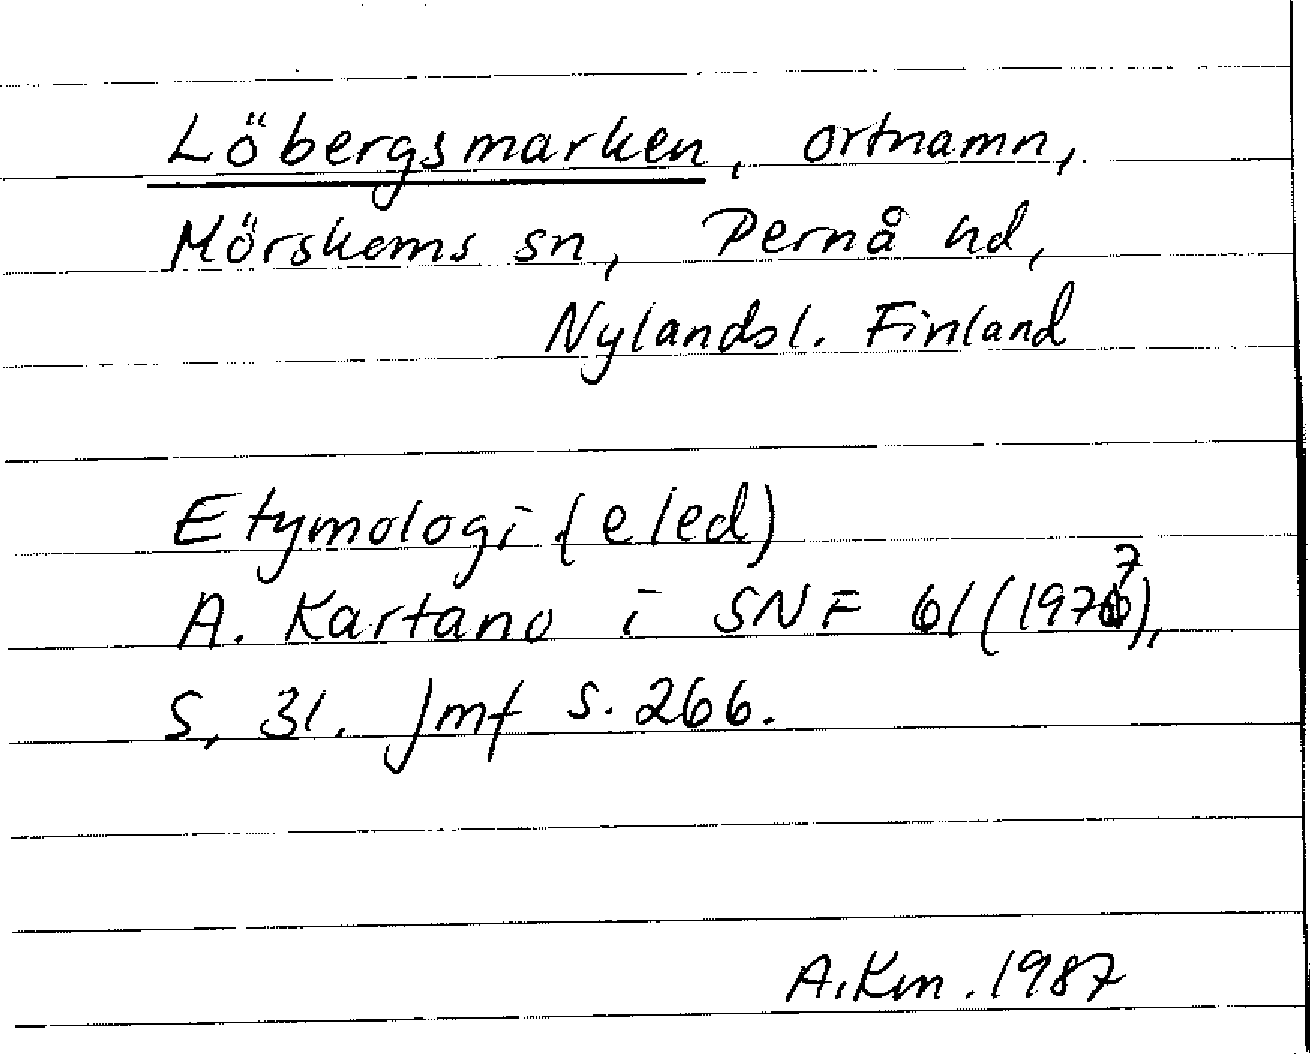 Löbergsmarken, ortnamn,
Mörskoms sn, Pernå hd,
Nylandsl. Finland
Etymologi (eled)
A. Kartano i SNF 61 (1977),
S, 31. Jmf s. 266.
A.Km. 1987